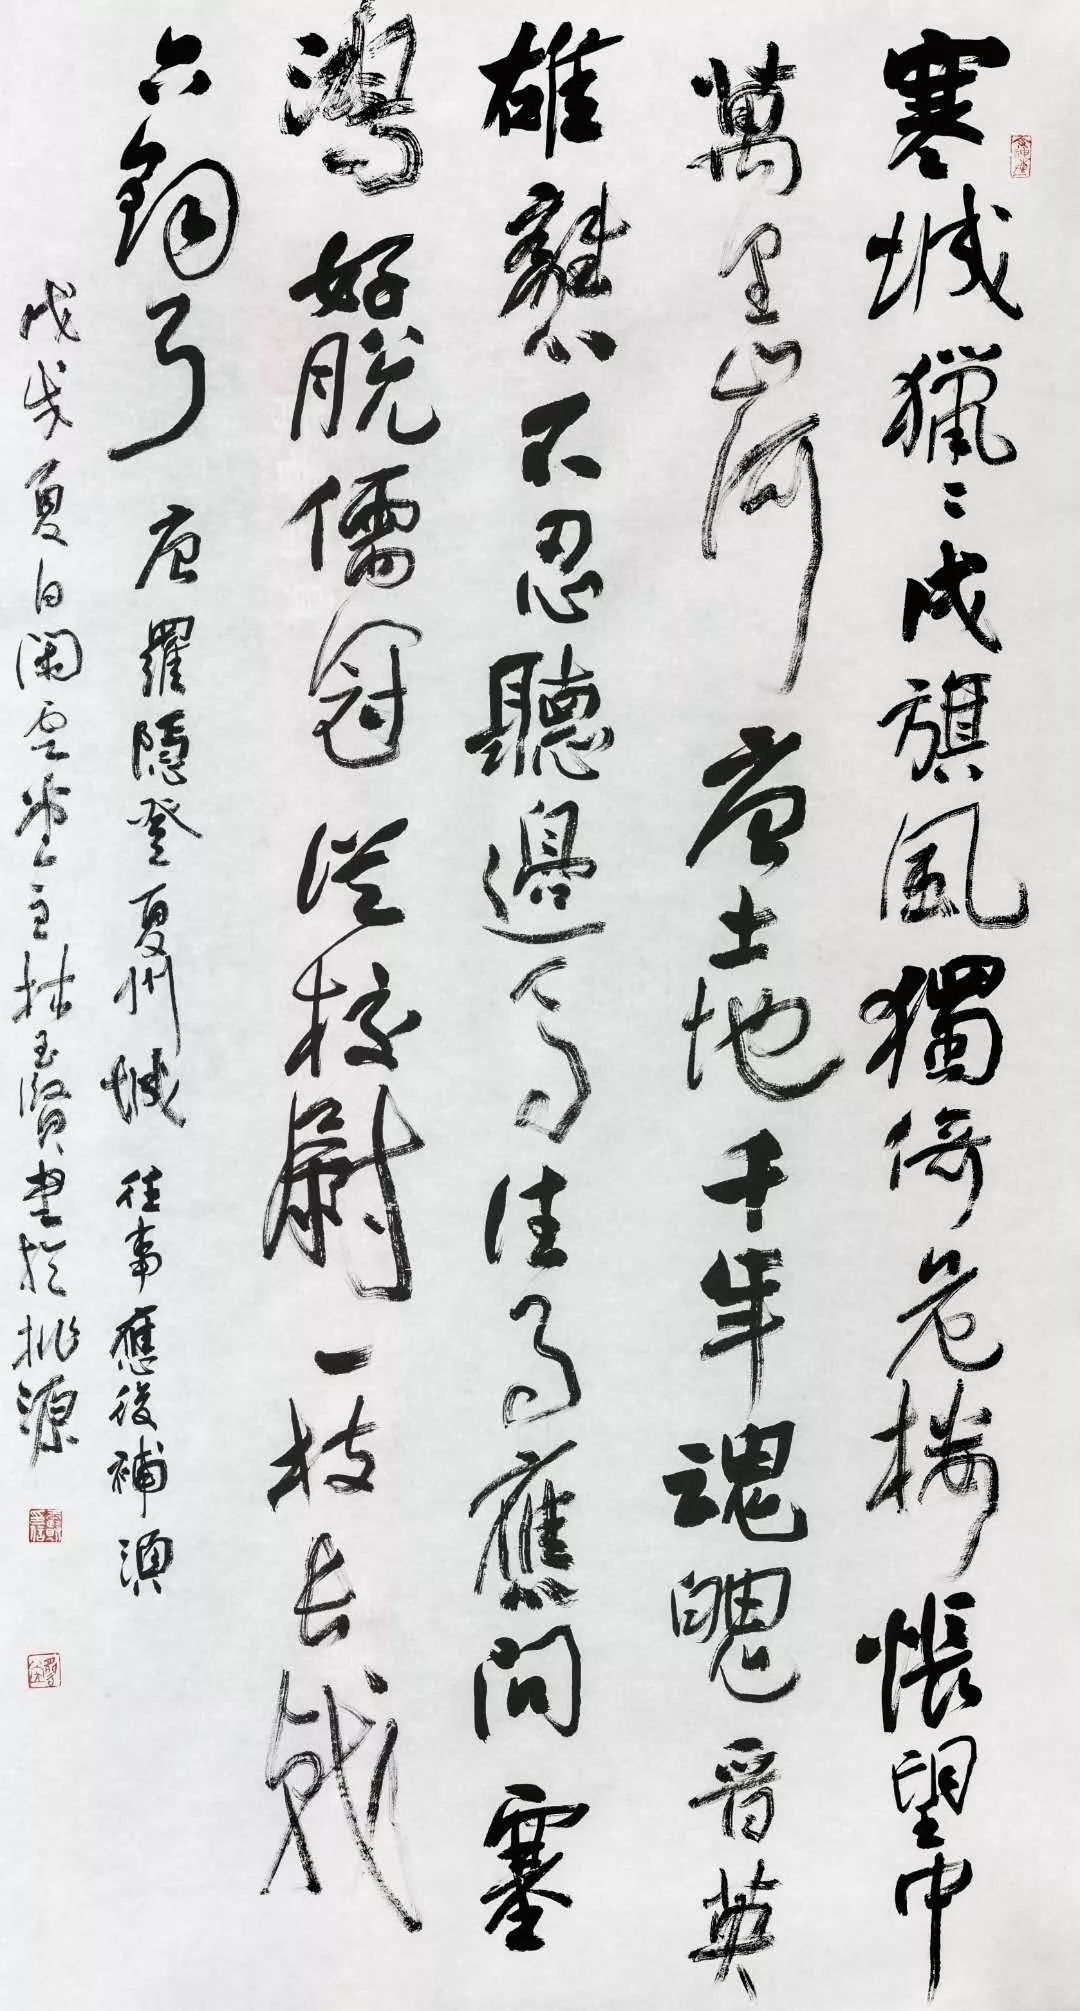 寒城獵々戍旗風獨倚危樓悵望中
萬里山河唐土地千年魂魄晉英
雄離心不忍聽邊馬往事應問塞
鴻好脫儒冠從校尉一枝长戟
六鈞弓 唐羅隱登夏州城 往事應後補須
戊戌夏日閑雲堂主林玉賢書於桃源